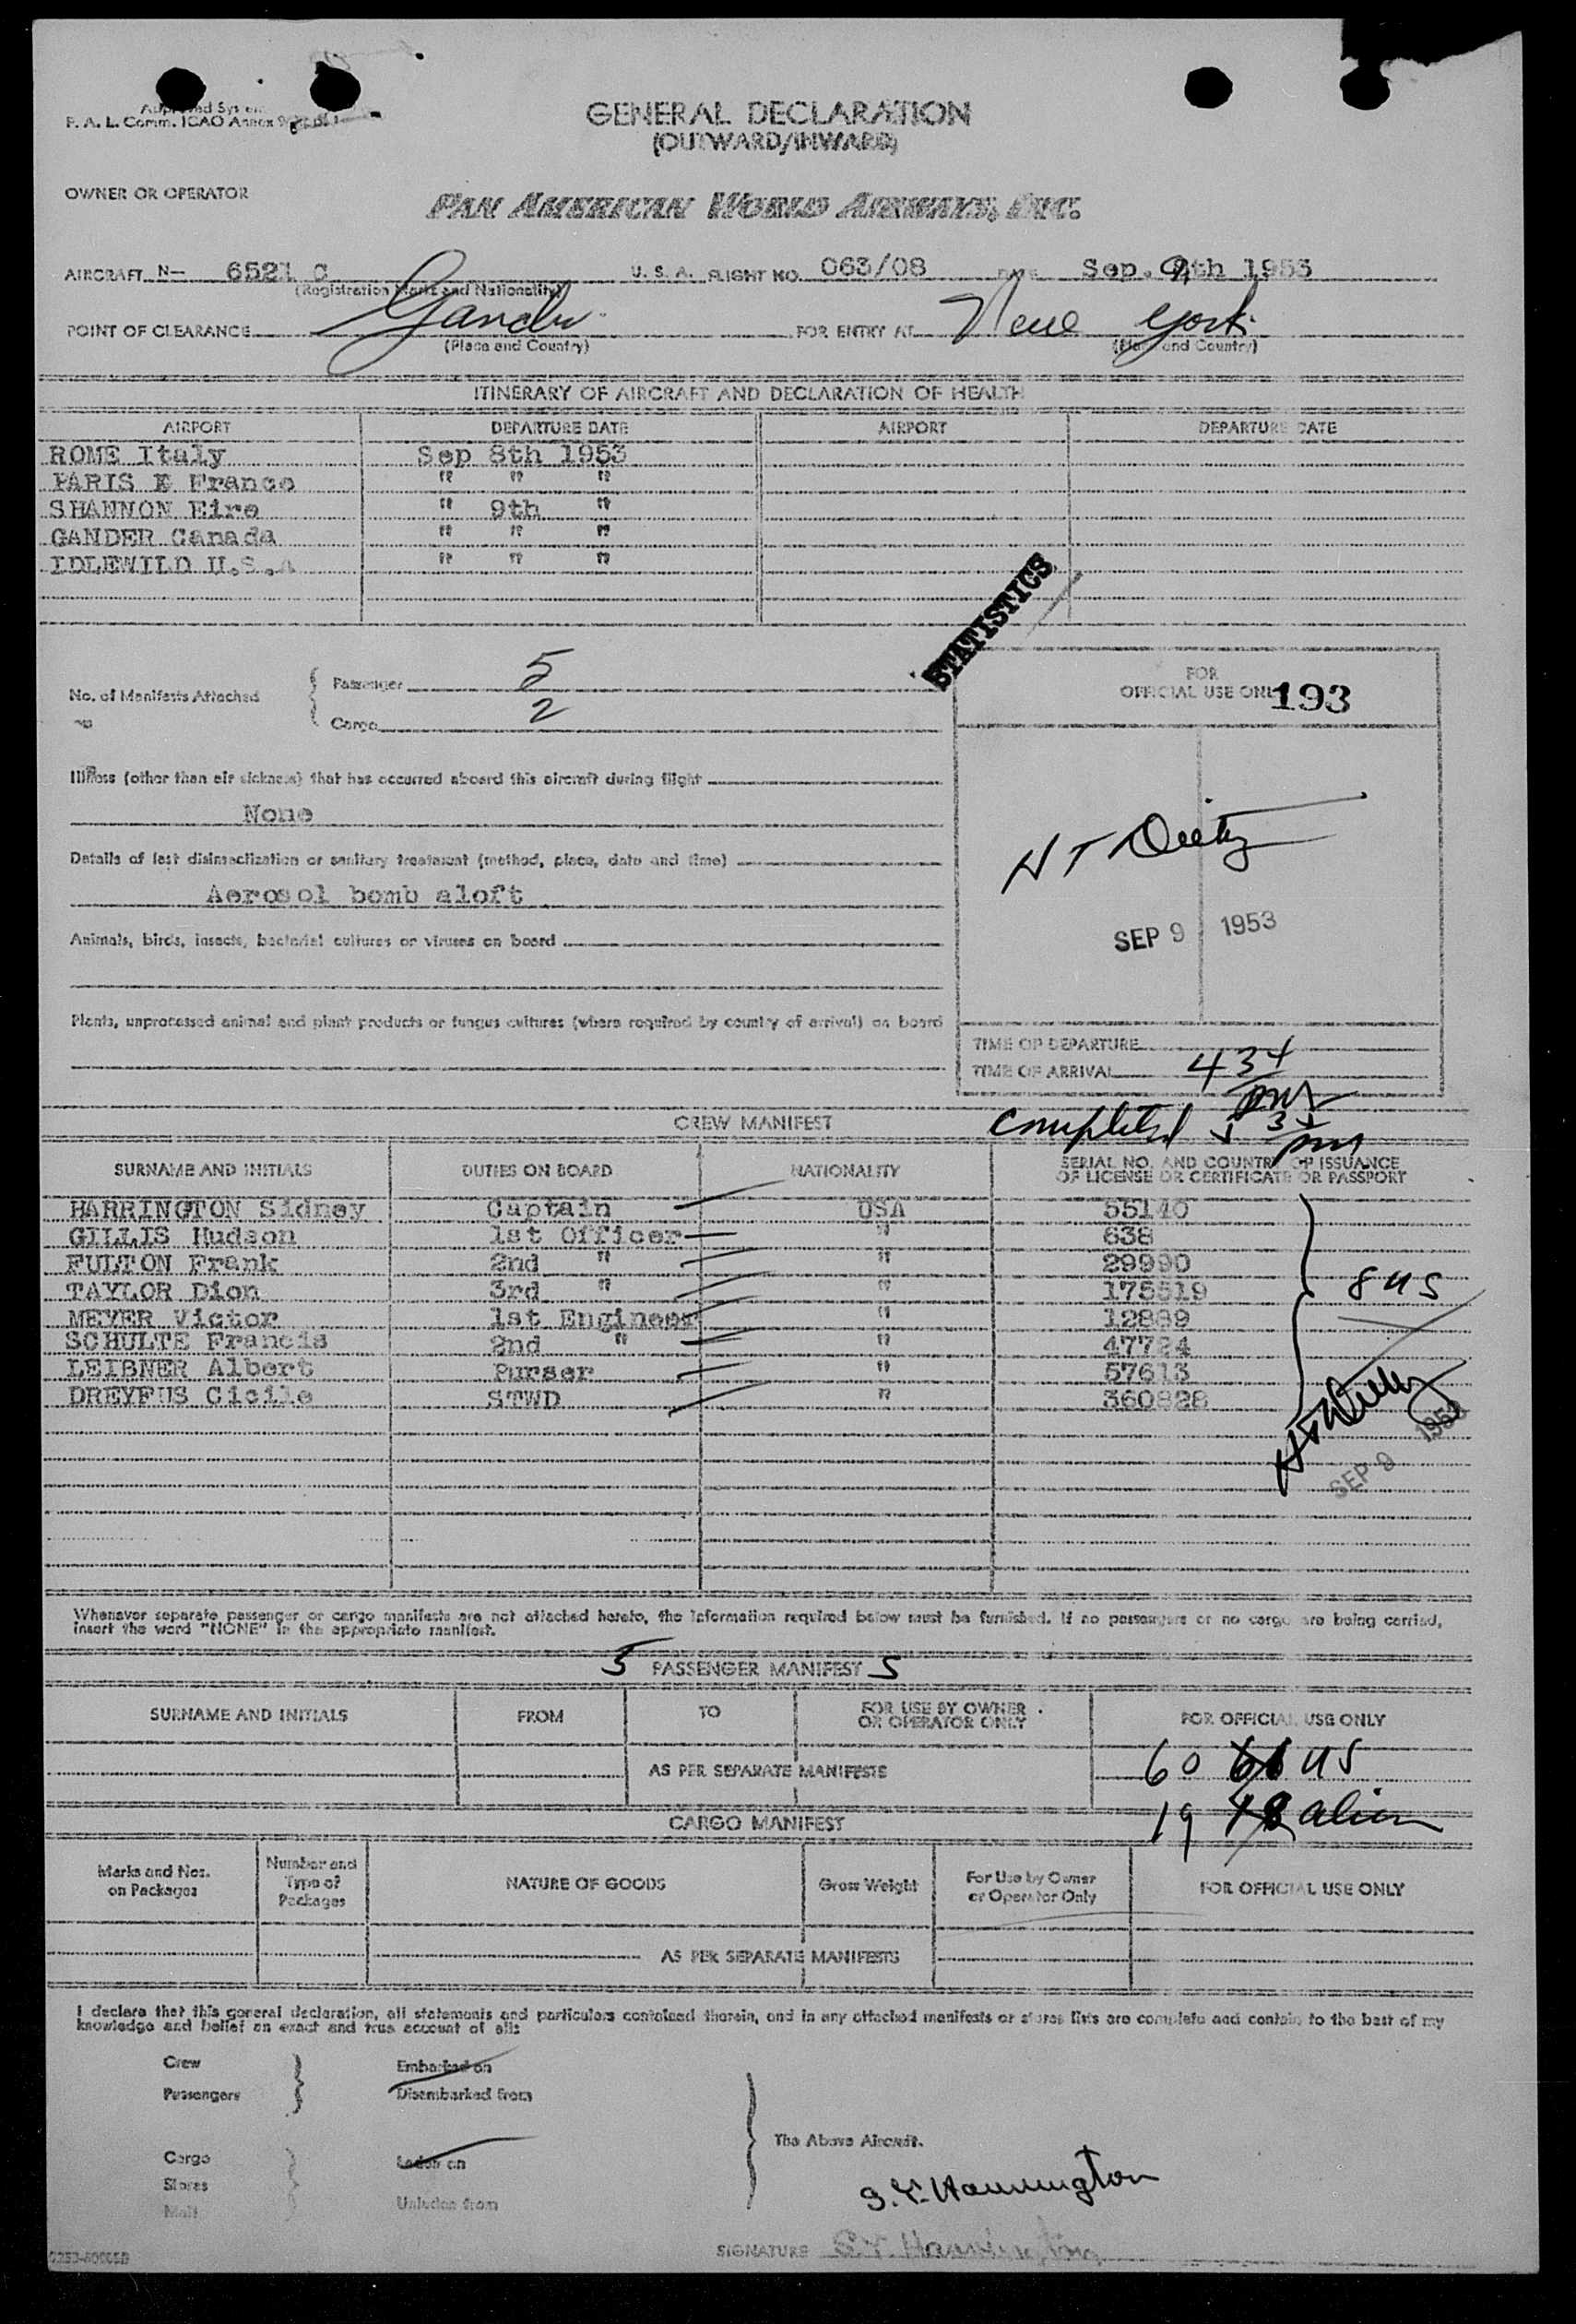 GENERAL DECLARATION
(OUTWARD/INWARD)
F. A. L. Comm. ICAO Annex 9
OWNER OR OPERATOR
PAN AMERICAN WORLD AIRWAYS, INC.
AIRCRAFT N- 6521 C U. S. A. FLIGHT NO. 063/08 DATE Sep. 9th 1953
(Registration Marks and Nationality)
POINT OF CLEARANCE Gander FOR ENTRY AT New York
(Place and Country) (Place and Country)
ITINERARY OF AIRCRAFT AND DECLARATION OF HEALTH
AIRPORT DEPARTURE DATE AIRPORT DEPARTURE DATE
ROME Italy Sep 8th 1953
PARIS E France " " "
SHANNON Eire " 9th "
GANDER Canada " " "
IDLEWILD U.S.A " " "
STATISTICS
No. of Manifests Attached { Passenger 5
Cargo 2
FOR
OFFICIAL USE ONLY 193
Illness (other than air sickness) that has occurred aboard this aircraft during flight
None
Details of last disinsectization or sanitary treatment (method, place, date and time)
Aerosol bomb aloft
Animals, birds, insects, bacterial cultures or viruses on board
SEP 9 1953
Plants, unprocessed animal and plant products or fungus cultures (where required by country of arrival) on board
TIME OF DEPARTURE
TIME OF ARRIVAL 434 pm
CREW MANIFEST
Completed pm
SURNAME AND INITIALS DUTIES ON BOARD NATIONALITY SERIAL NO. AND COUNTRY OF ISSUANCE
OF LICENSE OR CERTIFICATE OR PASSPORT
HARRINGTON Sidney Captain USA 55140
GILLIS Hudson 1st Officer " 638
FULTON Frank 2nd " " 29990
TAYLOR Dion 3rd " " 175519
MEYER Victor 1st Engineer " 12889
SCHULTE Francis 2nd " " 47724
LEIBNER Albert Purser " 57613
DREYFUS Cicile STWD " 360828
8 US
SEP 9 1953
Whenever separate passenger or cargo manifests are not attached hereto, the information required below must be furnished. If no passengers or no cargo are being carried,
insert the word "NONE" in the appropriate manifest.
5 PASSENGER MANIFEST 5
SURNAME AND INITIALS FROM TO FOR USE BY OWNER
OR OPERATOR ONLY FOR OFFICIAL USE ONLY
60 US
AS PER SEPARATE MANIFESTS
19 alien
CARGO MANIFEST
Marks and Nos.
on Packages
Number and
Type of
Packages
NATURE OF GOODS
Gross Weight
For Use by Owner
or Operator Only
FOR OFFICIAL USE ONLY
AS PER SEPARATE MANIFESTS
I declare that this general declaration, all statements and particulars contained therein, and in any attached manifests or stores lists are complete and contain to the best of my
knowledge and belief an exact and true account of all:
Crew Embarked on
Passengers Disembarked from
The Above Aircraft.
Cargo Laden on
Stores
Mail Unladen from
S.Y. Harrington
SIGNATURE S.Y. Harrington